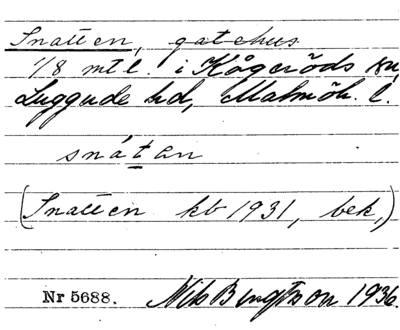 Snatten, gatehus
1/8 mtl. i Kågeröds sn,
Luggude hd, Malmöh. l.
snátan
(Snatten kb 1931, bek.)
Nr 5688. Nils Bengtsson 1936.